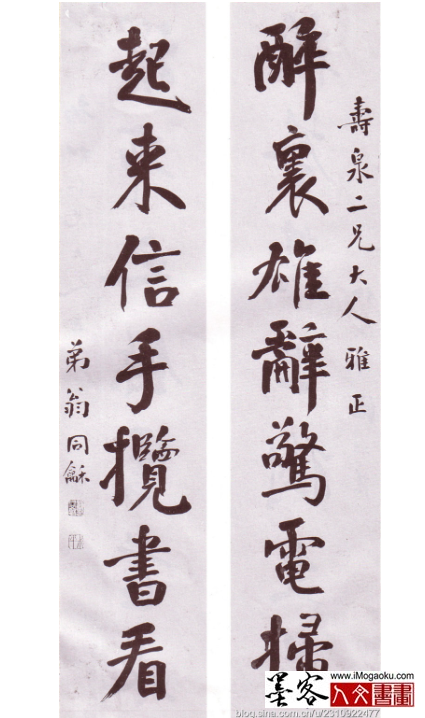 壽泉二兄大人雅正
醉裏雄辭驚電掃
起来信手攬書看
弟翁同龢
墨客
www.iMogaoku.com
人文書畫
blog.sina.com.cn/u/2310922477